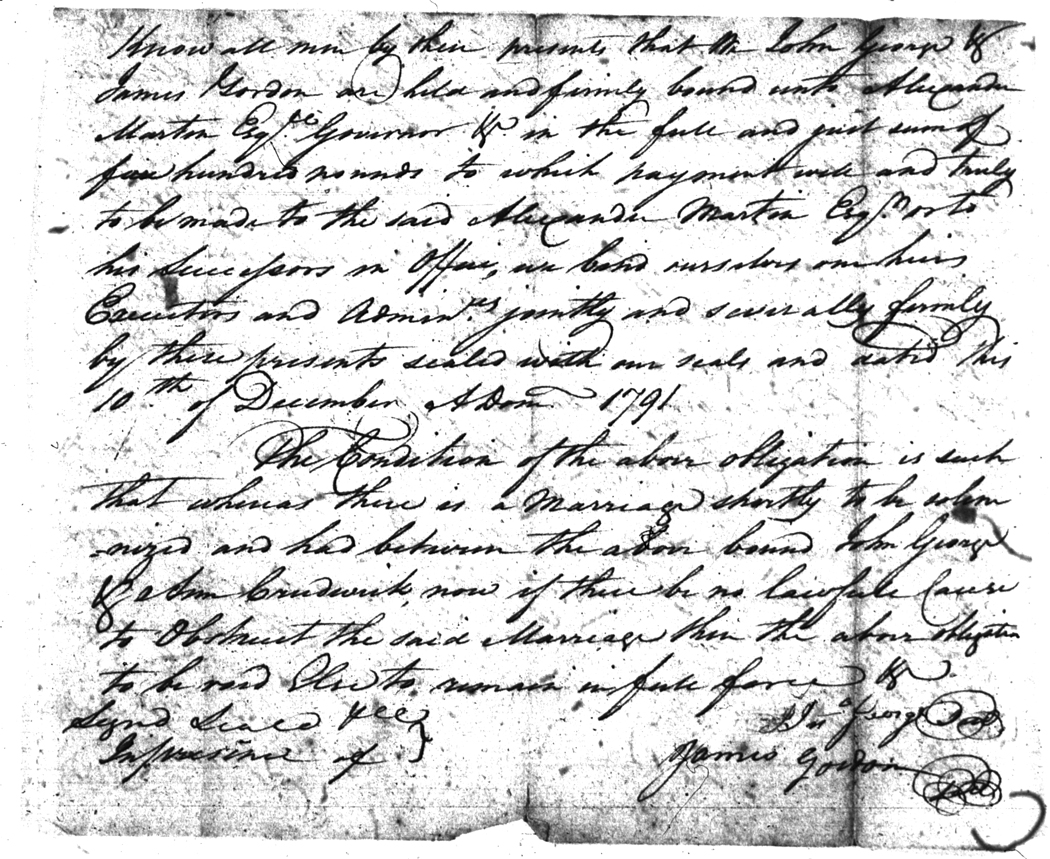 Know all men by these presents that We John George &
James Gordon are held and firmly bound unto Alexander
Martin Esq.r Governor &c in the full and just sum of
five hundred pounds to which payment well and truly
to be made to the said Alexander Martin Esq.r or to
his Successors in Office, we bind ourselves our heirs
Executors and Admin.rs jointly and severally firmly
by these presents sealed with our seals and dated this
10th of December A Dom 1791
The Condition of the above obligation is such
that whereas there is a Marriage shortly to be solem
-nized and had between the above bound John George
& Ann Crudwick, now if there be no lawfull Cause
to Obstruct the said Marriage then the above obligation
to be void Else to remain in full force &c
Signd Seald &cc }
In presence of }
Jno George Seal
James Gordon Seal